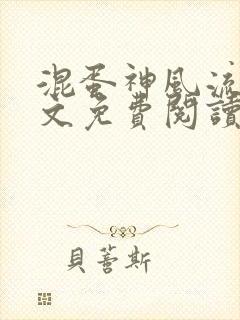 混蛋神風流
文免費閱讀
貝蒼斯